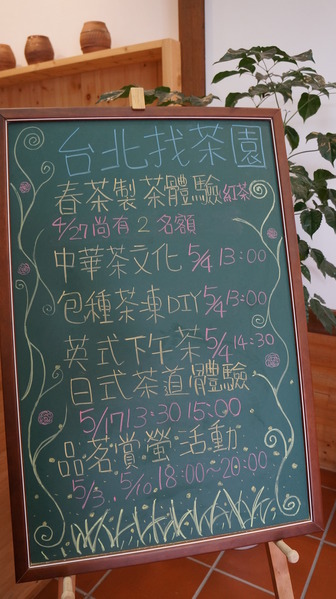 台北找茶園
春茶製茶體驗紅茶
4/27尚有2名額
中華茶文化5/4 13:00
包種茶凍DIY 5/4 13:00
英式下午茶5/4 14:30
日式茶道體驗
5/17 13:30 15:00
品茗賞螢活動
5/3、5/10 18:00~20:00